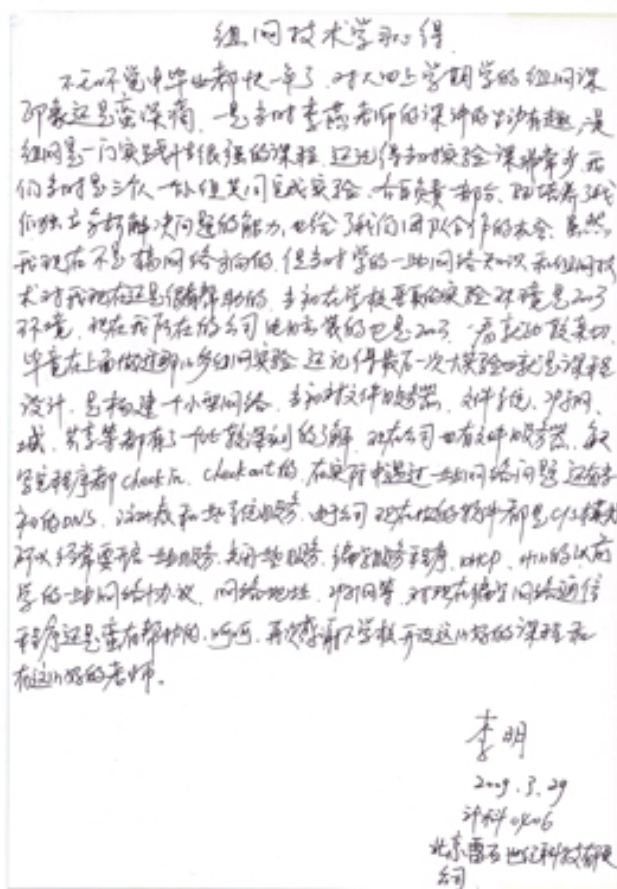 组网技术学习心得
不知不觉中毕业都快一年了,对大四上学期学的组网课
印象还是蛮深滴,一是当时李燕老师的课讲的生动有趣,
组网是一门实践性很强的课程,还记得当时实验课非常多,我
们当时是三个人一队组共同完成实验,各自负责一部分,既培养了我
们独立分析解决问题的能力,也给了我们团队合作的机会。虽然
我现在不是搞网络方向的,但当时学的一些网络知识和组网技
术对我现在还是很有帮助的,当初在学校要真的实验环境是2003
环境,现在我所在的公司电脑装的也是2003,一看就比较亲切,
毕竟在上面做过那么多组网实验,还记得最后一次大实验也就是课程
设计,是构建一个小型网络,当初对文件服务器,文件系统,对等网,
域,共享等都有了一个比较深刻的了解,现在公司也有文件服务器,每
写完程序都check in, check out的,在实际中遇过一些网络问题,还有当
初的DNS,活动目录和一些系统服务,由于公司现在做的软件都是C/S模式
所以经常要开启一些服务,关闭一些服务,编写服务程序,DHCP,
学的一些网络协议,网络地址,对等网等,对现在编写网络通信
程序还是蛮有帮助的,呵呵,再次感谢学校开设这么好的课程和
有这么好的老师。
李明
2009.3.29
计科0406
北京雷石世纪科技有限
公司